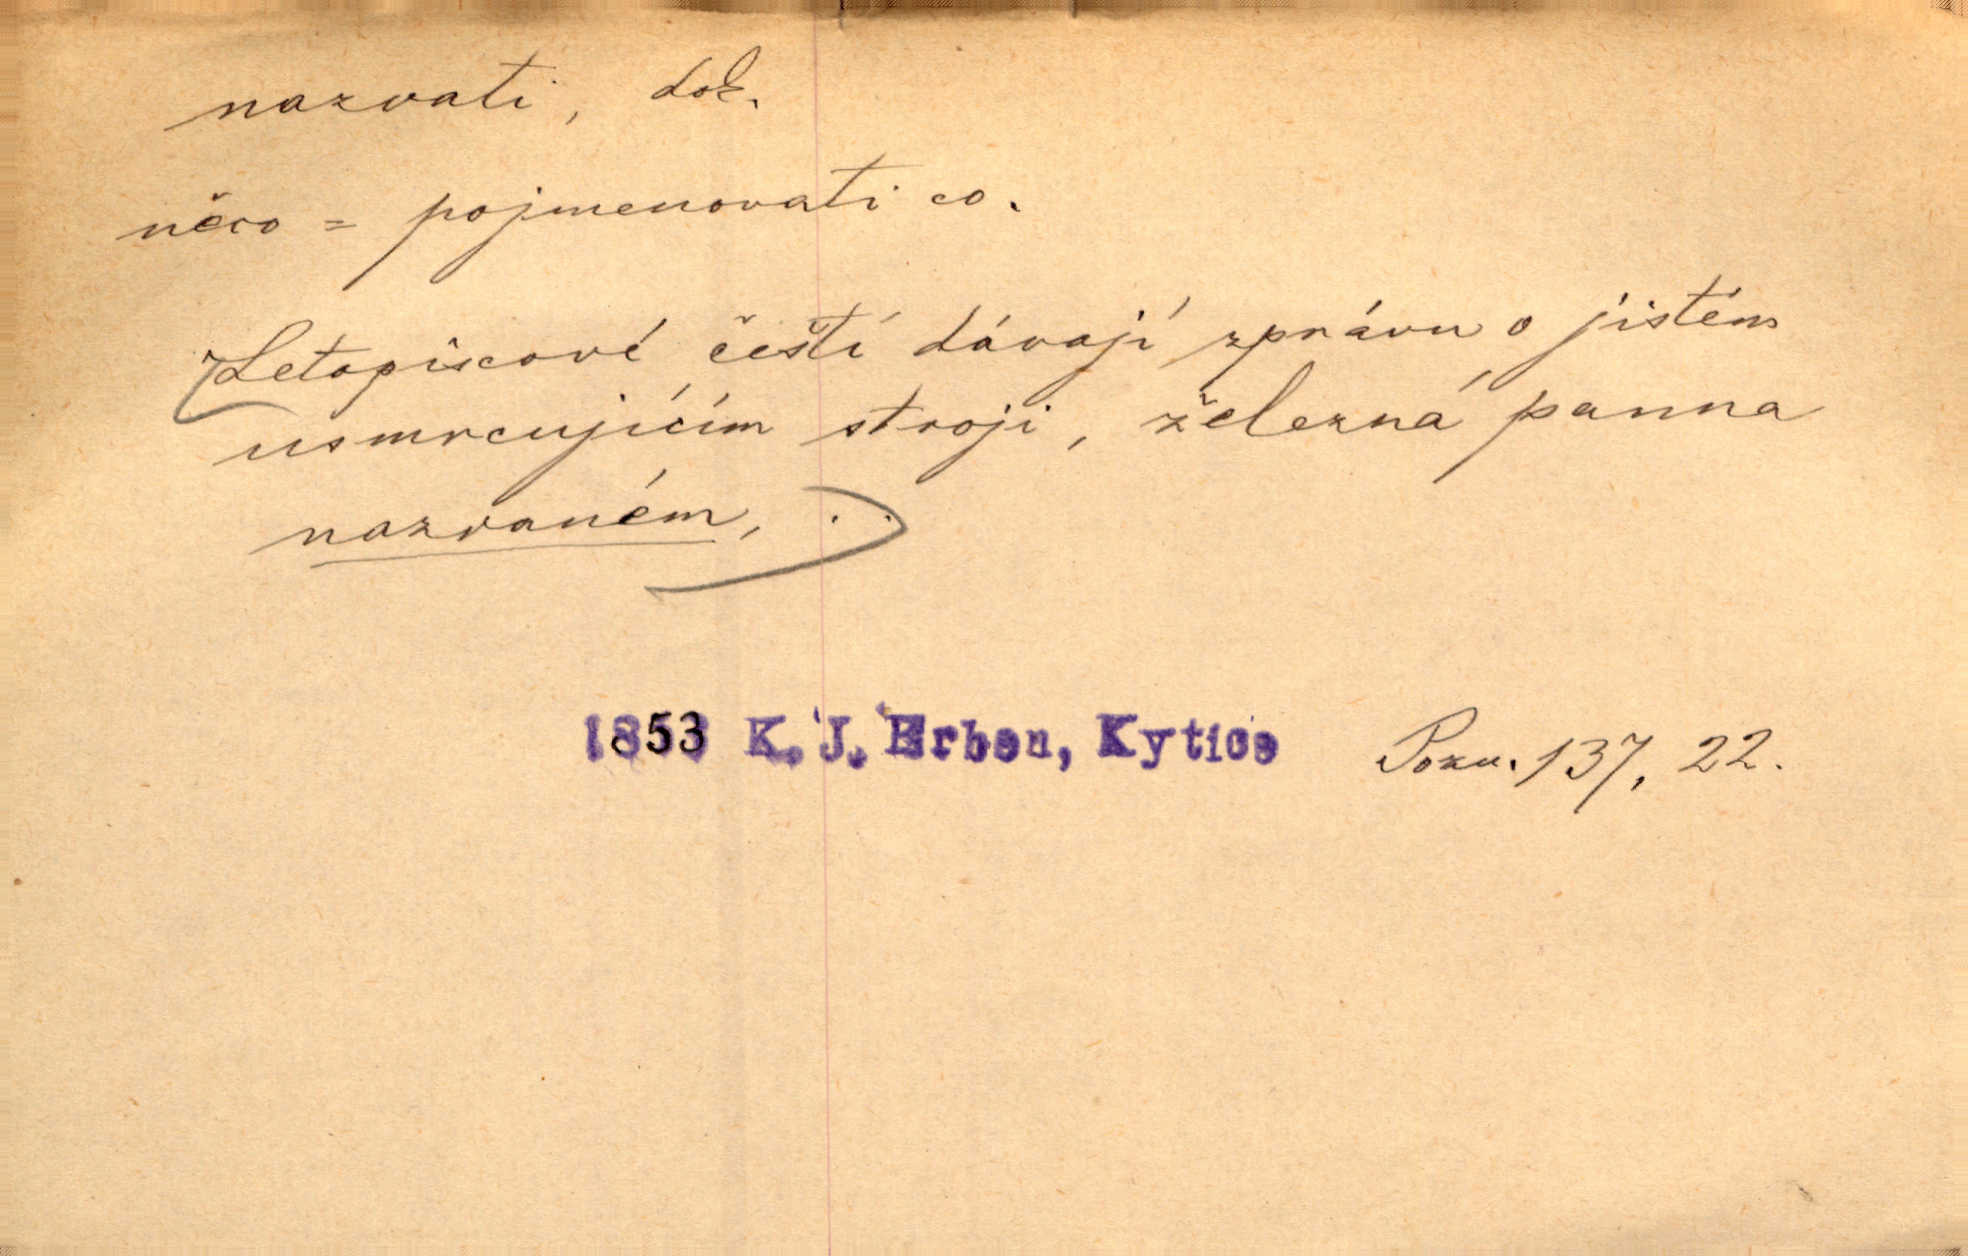 nazvati, dok.
něco = pojmenovati co.
Letopiscové čeští dávají zprávu o jistém
usmrcujícím stroji, železná panna
nazvaném, . .
1853 K. J. Erben, Kytice Pozn. 137, 22.